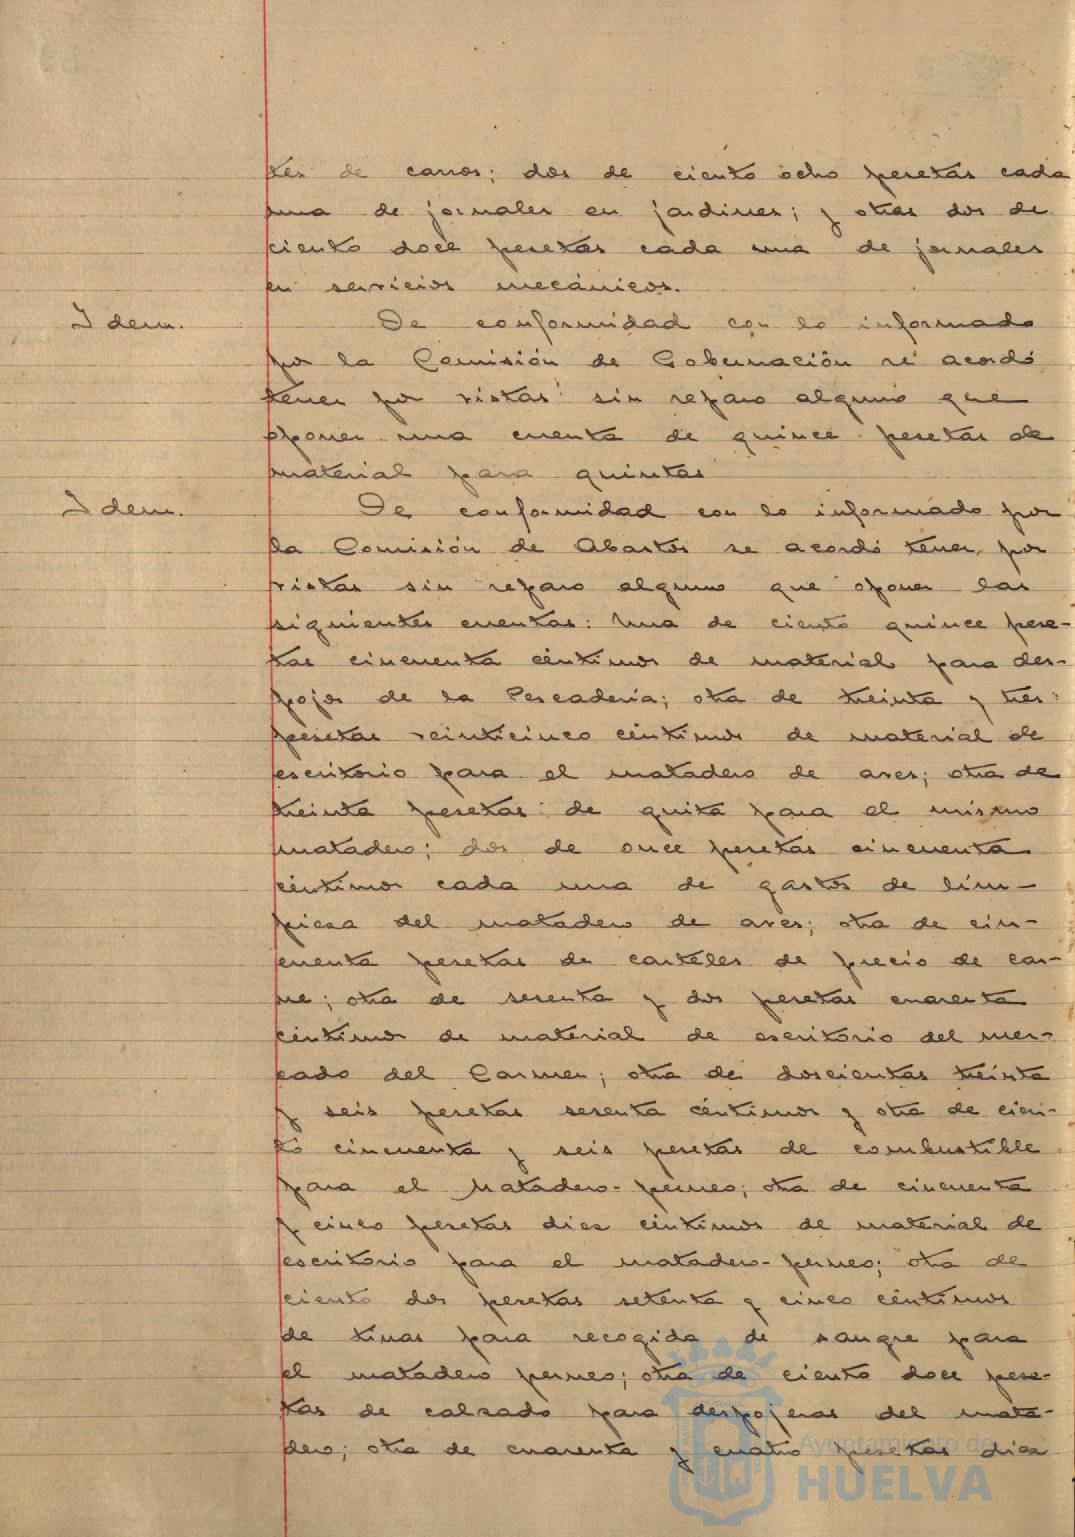 tes de carros; dos de ciento ocho pesetas cada
una de jornales en jardines; y otras dos de
ciento doce pesetas cada una de jornales
en servicios mecánicos.
Idem. De conformidad con lo informado
por la Comisión de Gobernación se acordó
tener por vistas sin reparo alguno que
oponer una cuenta de quince pesetas de
material para quintas
Idem. De conformidad con lo informado por
la Comisión de Abastos se acordó tener por
vistas sin reparo alguno que oponer las
siguientes cuentas: Una de ciento quince pese-
tas cincuenta céntimos de material para des-
pojos de la Pescadería; otra de treinta y tres
pesetas veinticinco céntimos de material de
escritorio para el matadero de aves; otra de
treinta pesetas de guita para el mismo
matadero; dos de once pesetas cincuenta
céntimos cada una de gastos de lim-
pieza del matadero de aves; otra de cin-
cuenta pesetas de carteles de precio de car-
ne; otra de sesenta y dos pesetas cuarenta
céntimos de material de escritorio del mer-
cado del Carmen; otra de doscientas treinta
y seis pesetas sesenta céntimos y otra de cien-
to cincuenta y seis pesetas de combustible
para el Matadero-perneo; otra de cincuenta
y cinco pesetas diez céntimos de material de
escritorio para el matadero-perneo; otra de
ciento dos pesetas setenta y cinco céntimos
de tinas para recogida de sangre para
el matadero perneo; otra de ciento doce pese-
tas de calzado para despojeras del mata-
dero; otra de cuarenta y cuatro pesetas diez
Ayuntamiento de
HUELVA